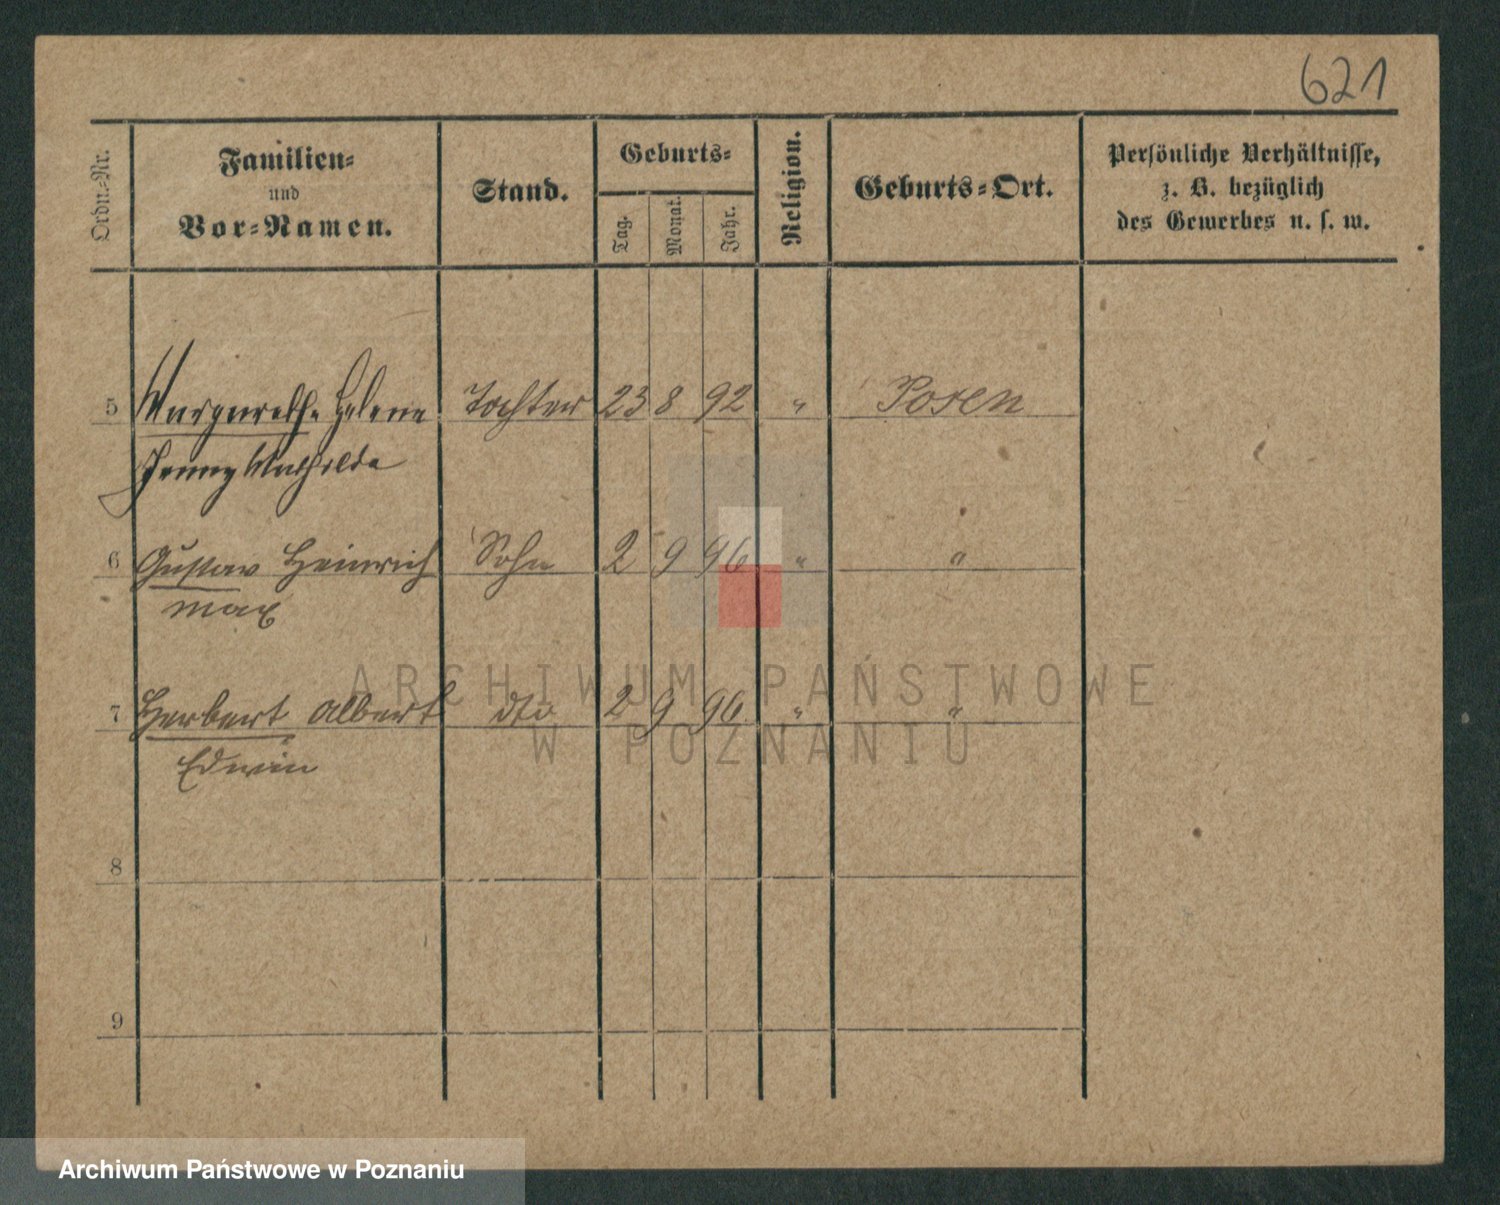 621
Ordn.-Nr.
Familien-
und
Vor-Namen.
Stand.
Geburts-
Tag.
Monat.
Jahr.
Religion.
Geburts-Ort.
Persönliche Verhältnisse,
z. B. bezüglich
des Gewerbes u. s. w.
5 Margarethe Helene Tochter 23 8 92 " Posen
Jenny Mathilde
6 Gustav Heinrich Sohn 2 9 96 " "
Max
7 Herbert Albert dto 2 9 96 " "
Edwin
8
9
ARCHIWUM PAŃSTWOWE
W POZNANIU
Archiwum Państwowe w Poznaniu